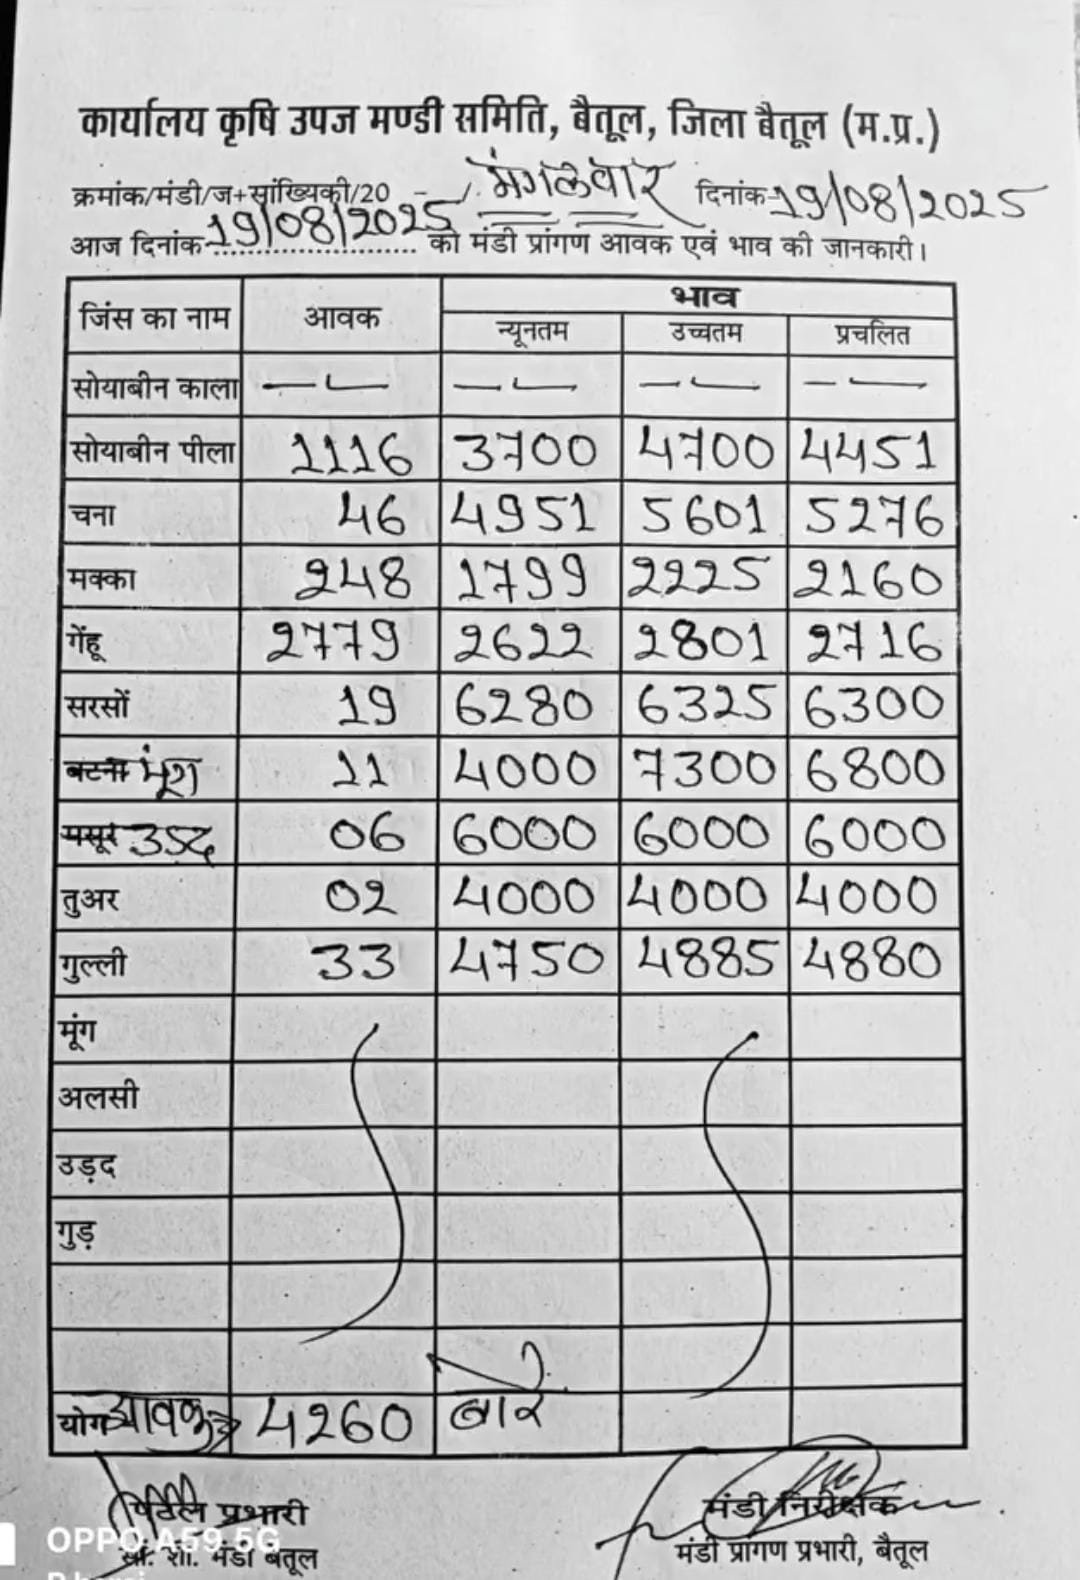 कार्यालय कृषि उपज मण्डी समिति, बैतूल, जिला बैतूल (म.प्र.)
क्रमांक/मंडी/ज+सांख्यिकी/20 - /. मंगलवार दिनांक 19/08/2025
आज दिनांक 19/08/2025 को मंडी प्रांगण आवक एवं भाव की जानकारी।
जिंस का नाम आवक भाव
न्यूनतम उच्चतम प्रचलित
सोयाबीन काला — — — —
सोयाबीन पीला 1116 3700 4700 4451
चना 46 4951 5601 5276
मक्का 248 1799 2225 2160
गेंहू 2779 2622 2801 2716
सरसों 19 6280 6325 6300
बटना मूंग 11 4000 7300 6800
मसूर उड़द 06 6000 6000 6000
तुअर 02 4000 4000 4000
गुल्ली 33 4750 4885 4880
मूंग
अलसी
उड़द
गुड़
योग आवक 4260 बोरे
प्रभारी मंडी निरीक्षक
मंडी बैतूल मंडी प्रांगण प्रभारी, बैतूल
OPPO A59 5G